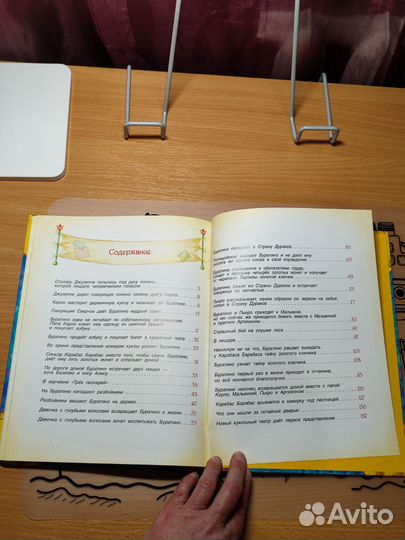 Содержание
Столяру Джузеппе попалось под руку полено,
которое пищало человеческим голосом 3
Джузеппе дарит говорящее полено своему другу Карло 5
Карло мастерит деревянную куклу и называет её Буратино 8
Говорящий Сверчок даёт Буратино мудрый совет
Буратино едва не погибает по собственному легкомыслию.
Папа Карло клеит ему одежду из цветной бумаги
и покупает азбуку
Буратино продаёт азбуку и покупает билет в кукольный театр 22
Во время представления комедии куклы узнают Буратино
Синьор Карабас Барабас вместо того, чтобы сжечь Буратино,
даёт ему пять золотых монет и отпускает домой
По дороге домой Буратино встречает двух нищих —
кота Базилио и лису Алису
В харчевне «Трёх пескарей»
На Буратино нападают разбойники
Разбойники вешают Буратино на дерево 47
Девочка с голубыми волосами возвращает Буратино к жизни 51
Девочка с голубыми волосами хочет воспитывать Буратино 55
Буратино попадает в Страну Дураков 60
Полицейские хватают Буратино и не дают ему
сказать ни одного слова в своё оправдание 65
Буратино знакомится с обитателями пруда,
узнаёт о пропаже четырёх золотых монет и получает
от черепахи Тортилы золотой ключик
Буратино бежит из Страны Дураков и встречает
товарища по несчастью
Пьеро рассказывает, каким образом он, верхом на зайце,
попал в Страну Дураков 77
Буратино и Пьеро приходят к Мальвине,
но им сейчас же приходится бежать вместе с Мальвиной
и пуделем Артемоном
Страшный бой на опушке леса 90
В пещере
Несмотря ни на что, Буратино решает выведать
у Карабаса Барабаса тайну золотого ключика
Буратино узнаёт тайну золотого ключика
Буратино первый раз в жизни приходит в отчаяние,
но всё кончается благополучно
Буратино наконец возвращается домой вместе с папой
Карло, Мальвиной, Пьеро и Артемоном
Карабас Барабас врывается в каморку под лестницей
Что они нашли за потайной дверью
Новый кукольный театр даёт первое представление
Avito